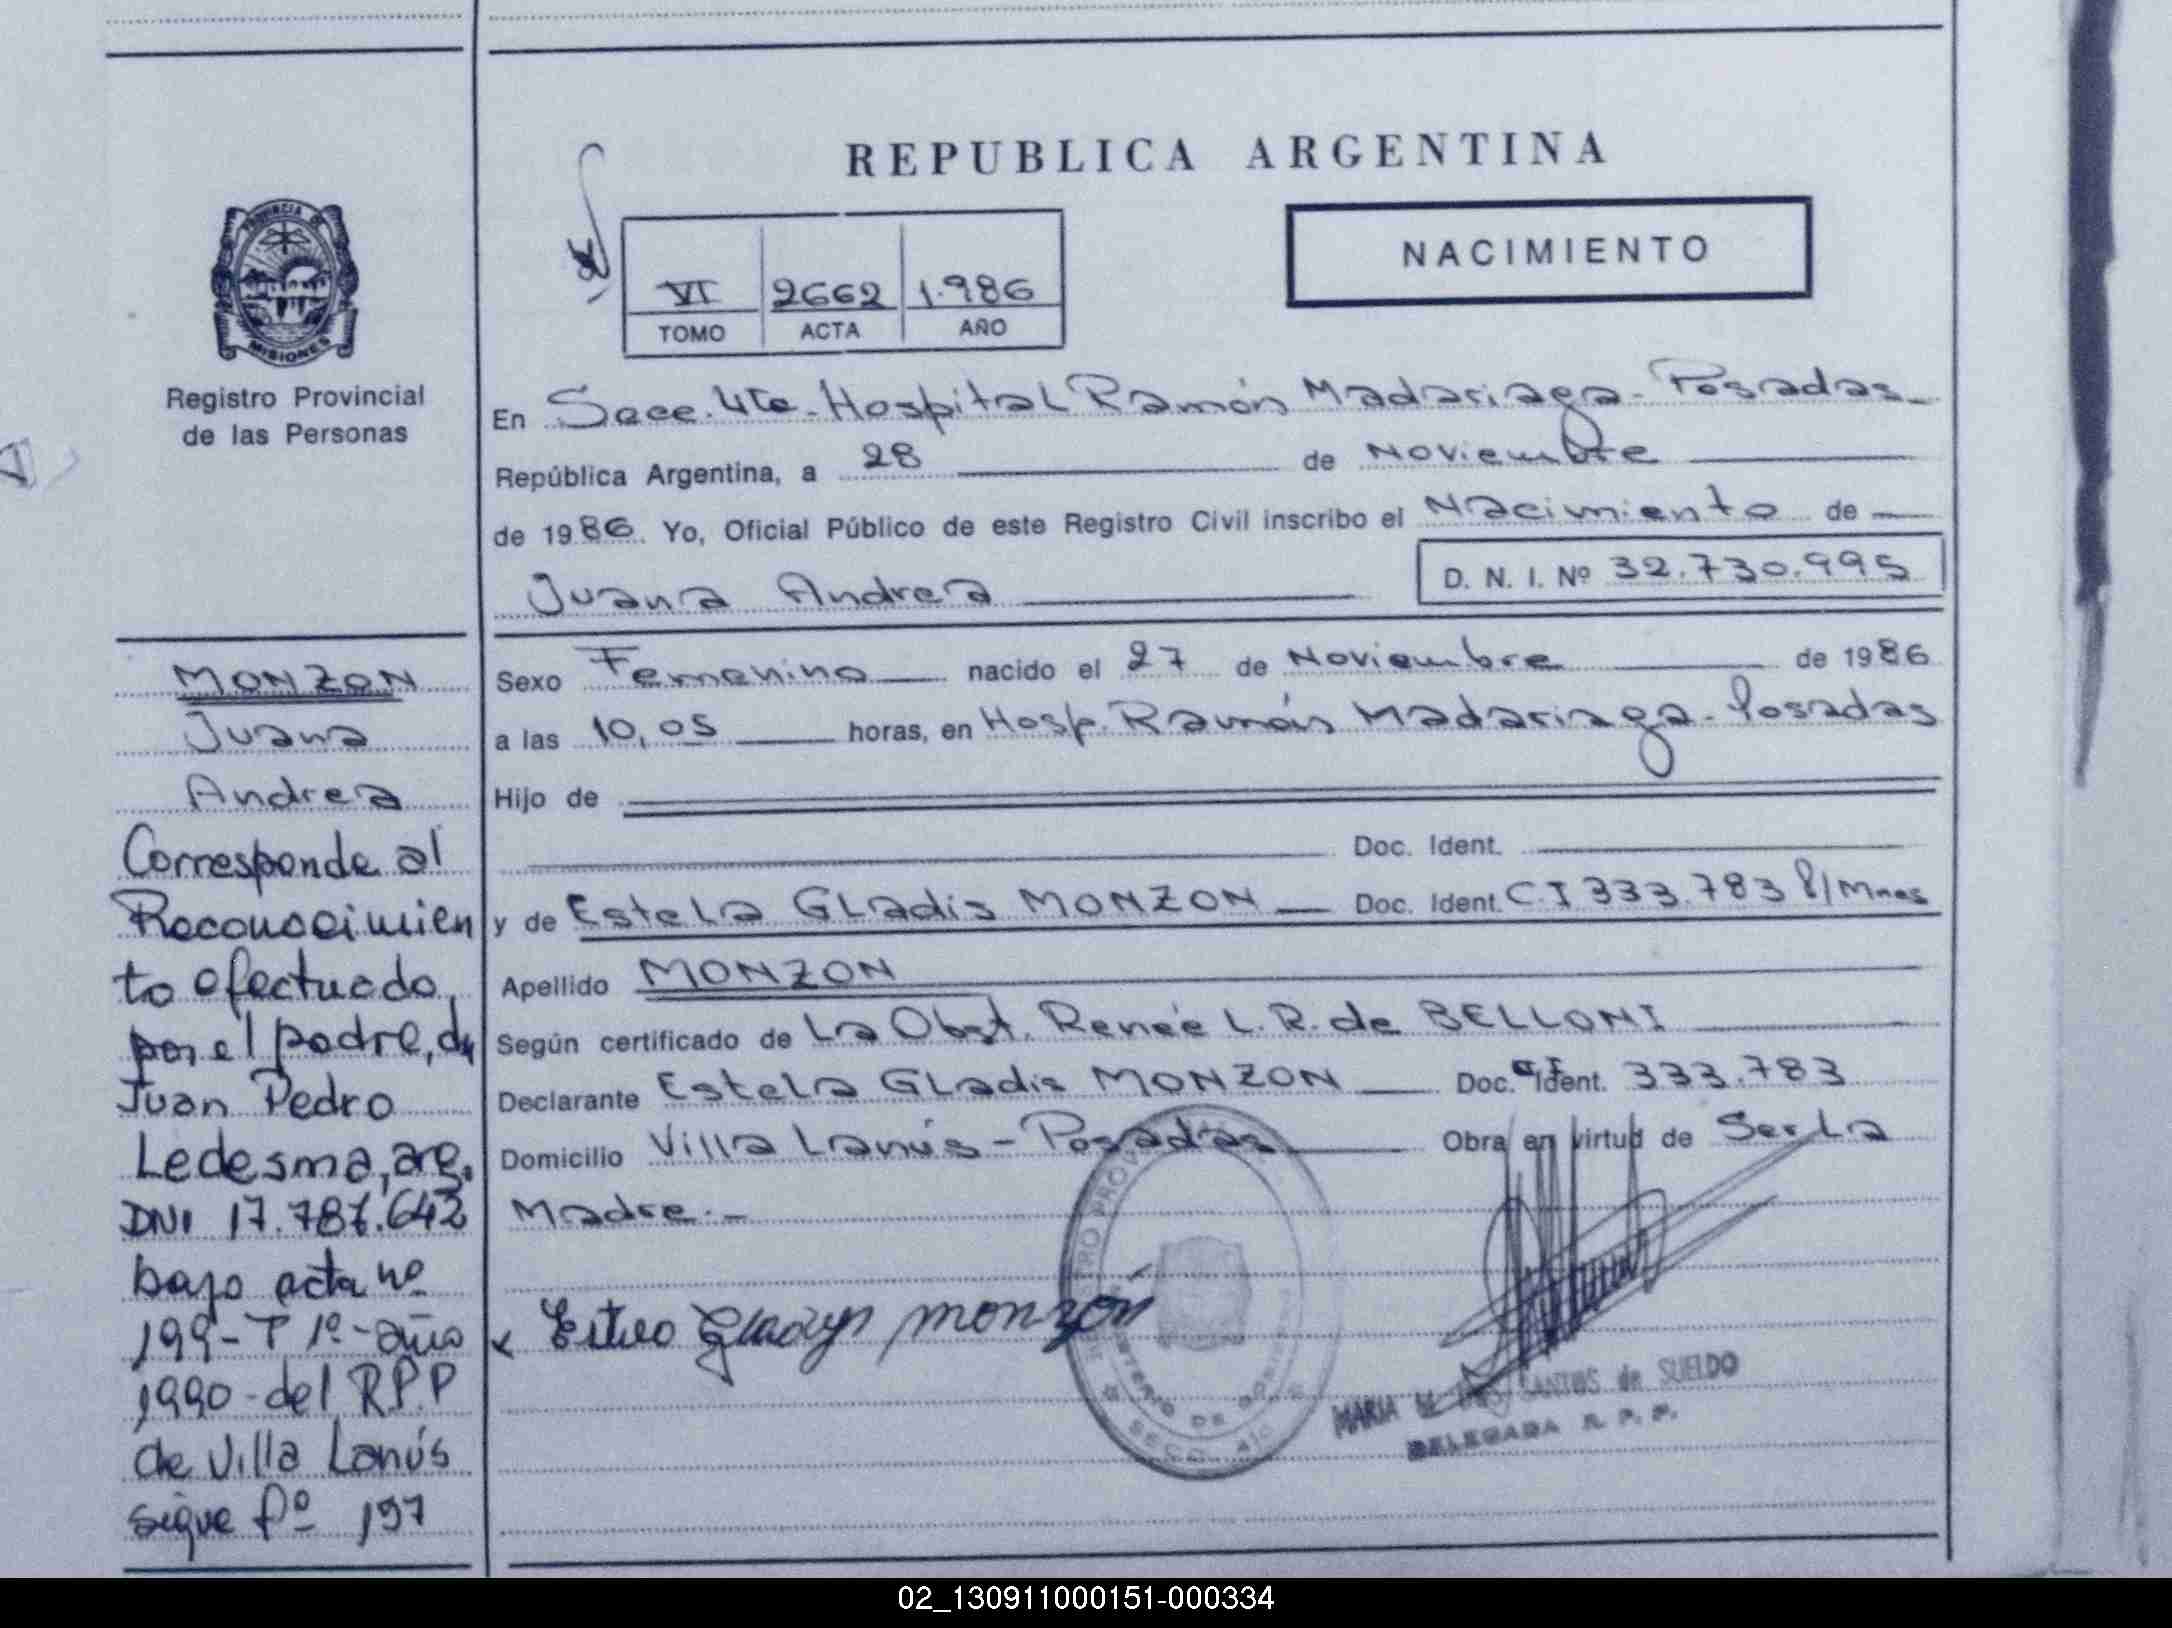 REPUBLICA ARGENTINA
NACIMIENTO
VI 2662 1.986
TOMO ACTA AÑO
PROVINCIA DE
MISIONES
Registro Provincial
de las Personas
En Secc. 4ta. Hospital Ramón Madariaga - Posadas
República Argentina, a 28 de Noviembre
de 1986. Yo, Oficial Público de este Registro Civil inscribo el Nacimiento de
Juana Andrea
D. N. I. Nº 32.730.995
Sexo Femenino nacido el 27 de Noviembre de 1986
a las 10,05 horas, en Hosp. Ramón Madariaga - Posadas
Hijo de
Doc. Ident.
y de Estela GLadis MONZON Doc. Ident. C.I 333.783 P/Mnes
Apellido MONZON
Según certificado de La Obst. Reneé L. R. de BELLONI
Declarante Estela GLadis MONZON Doc. Ident. CI 333.783
Domicilio Villa Lanús - Posadas Obra en virtud de Ser La
Madre.-
Gladys monzón
MARIA SANTOS de SUELDO
DELEGADA R. P. P.
MONZON
Juana
Andrea
Corresponde al
Reconocimien
to efectuado
por el padre, dn
Juan Pedro
Ledesma, arg.
DNI 17.787.642
bajo acta nº
199 - T 1º - año
1990 - del R.P.P
de Villa Lanús
sigue fº 197
02_130911000151-000334